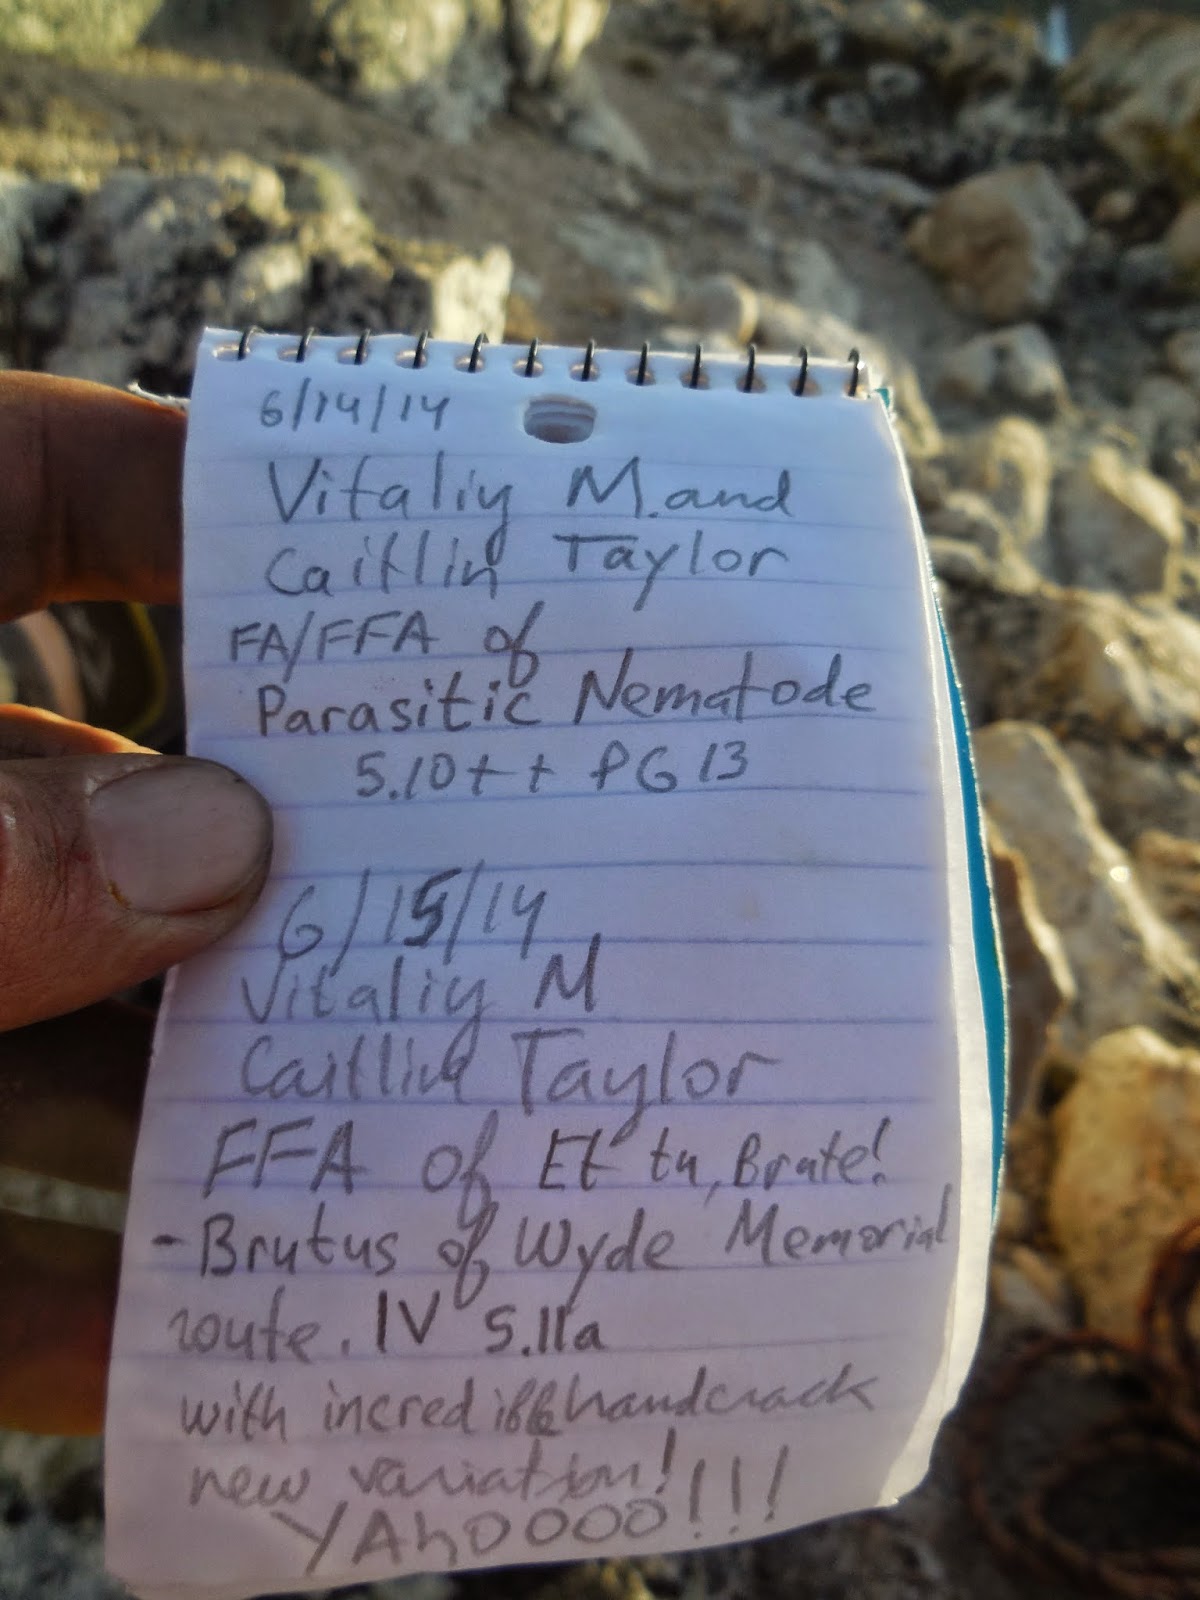 6/14/14
Vitaliy M. and
Caitlin Taylor
FA/FFA of
Parasitic Nematode
5.10++ PG13
6/15/14
Vitaliy M
Caitlin Taylor
FFA of Et tu, Brute!
- Brutus of Wyde Memorial
route. IV 5.11a
with incredible handcrack
new variation!
YAhoooo!!!